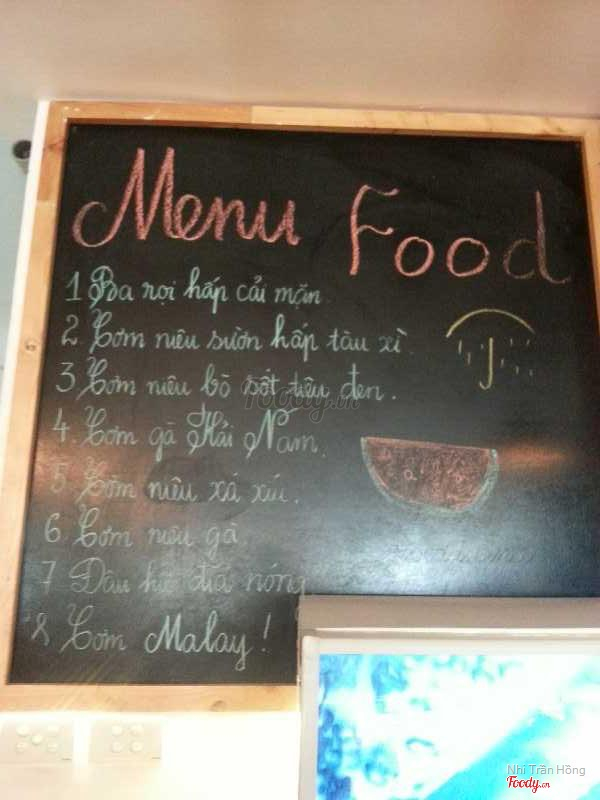 Menu Food
1 Ba rọi hấp cải mặn.
2 Cơm niêu sườn hấp tàu xì.
3 Cơm niêu bò sốt tiêu đen.
4. Cơm gà Hải Nam.
5 Cơm niêu xá xíu.
6 Cơm niêu gà.
7 Đậu hũ dĩa nóng
8 Cơm Malay!
foody.vn
Nhi Trần Hồng
Foody.vn